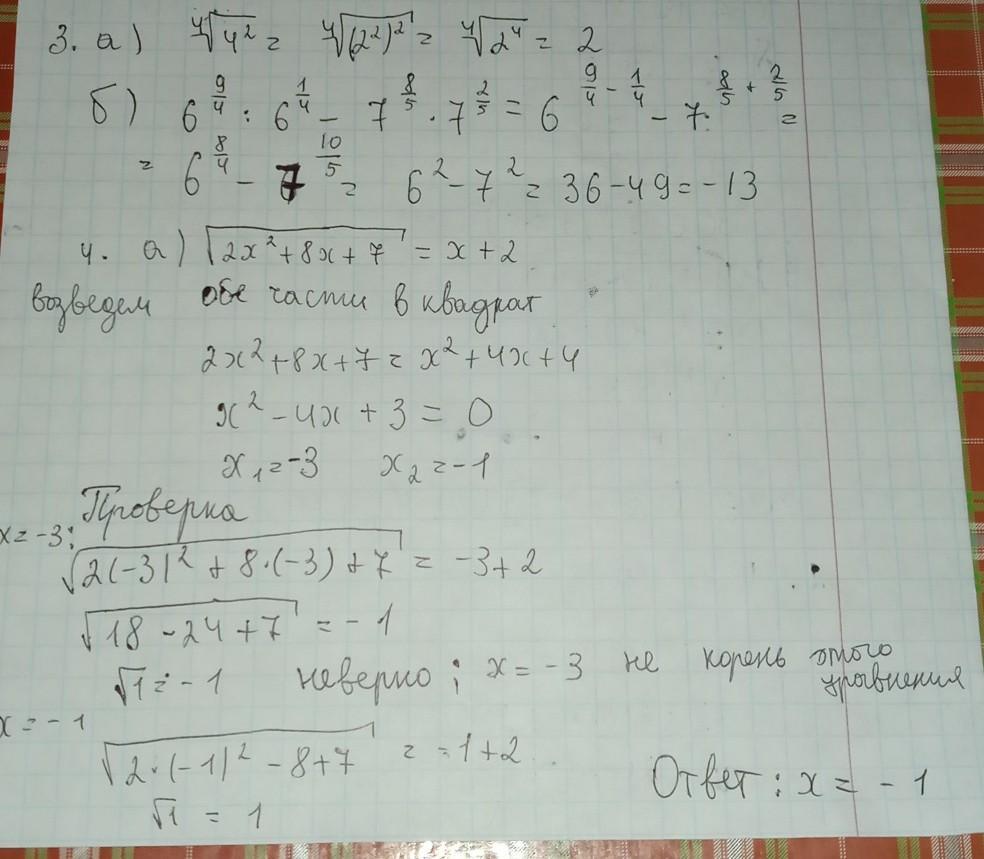 3. а) ⁴√4² = ⁴√(2²)² = ⁴√2⁴ = 2
б) 6^(9/4) : 6^(1/4) − 7^(8/5) · 7^(2/5) = 6^(9/4 − 1/4) − 7^(8/5 + 2/5) =
= 6^(8/4) − 7^(10/5) = 6² − 7² = 36 − 49 = −13
4. а) √(2x² + 8x + 7) = x + 2
возведем обе части в квадрат
2x² + 8x + 7 = x² + 4x + 4
x² − 4x + 3 = 0
x₁ = −3 x₂ = −1
Проверка
x = −3:
√(2(−3)² + 8·(−3) + 7) = −3 + 2
√(18 − 24 + 7) = −1
√1 = −1 неверно; x = −3 не корень этого уравнения
x = −1
√(2·(−1)² − 8 + 7) = −1 + 2
√1 = 1
Ответ: x = −1